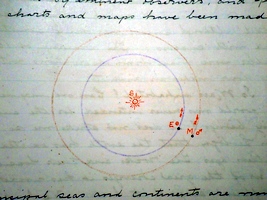 eminent observers, and
charts and maps have been mad
S
E
M
seas and continents are